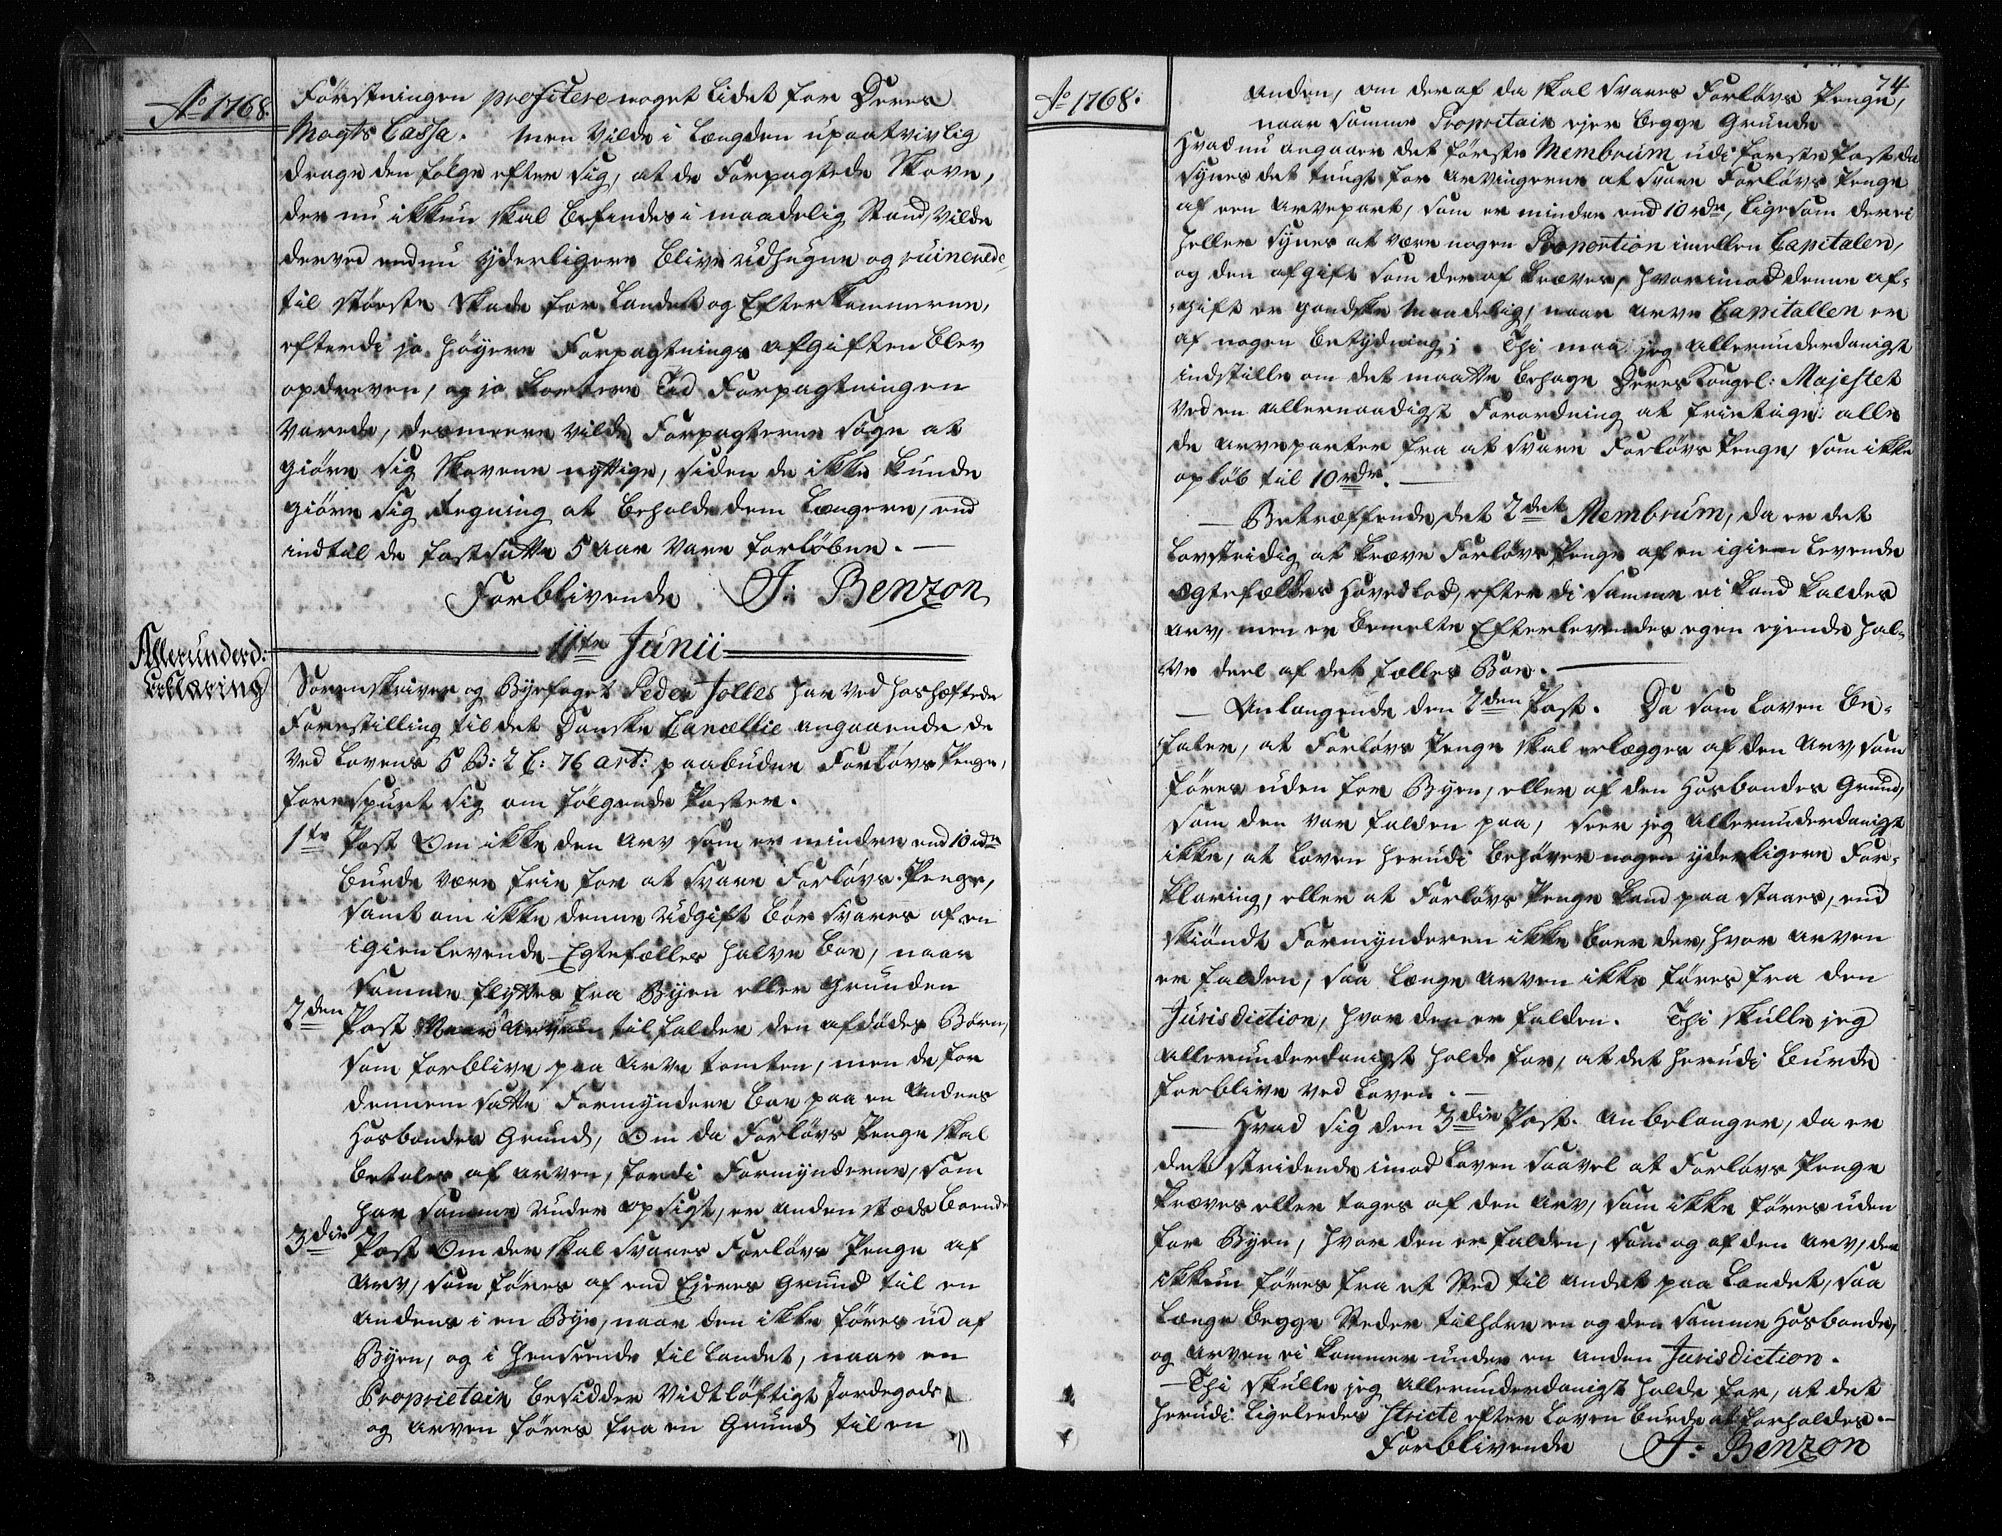 Ao 1768.
Förstningen profitere noget lidet for Deres
Mayts Cassa. Men vilde i Længden upaatvivlig
drage den følge efter sig, at de Forpagtede Skove,
der nu ikkun skal befindes i maadelig Stand, vilde
derved endnu yderligere blive udhugne og ruinerede
til største Skade for Landet og Efterkommerne,
efterdi jo høyere Forpagtnings afgiften blev
opdreven, og jo kortere Tid Forpagtningen
varede, desmeere vilde Forpagterne søge at
giøre sig Skovene nyttige, siden de ikke kunde
giøre sig Regning at beholde dem længere, end
indtil de fastsatte 5 aar vare forløbne. —
Forblivende J: Benzon
11te Junii
Allerunderd:
Erklæring
Sorenskriver og Byefoget Peder Jolles har ved hoshæftede
Forestilling til det Danske Cancellie angaaende de
ved Lovens 5 B: 2 C: 76 art: paabudne Forlovs Penge,
forespurt sig om følgende Poster.
1te Post Om ikke den Arv som er mindre end 10 rdr
burde være frie for at svare Forlovs-Penge,
samt om ikke denne udgift bør svares af en
igienlevende Egtefælles halve Boe, naar
samme flyttes fra Byen eller Grunden
2den Post Naar Arven tilfalder den afdødes Børn,
som forblive paa Arve tomten, men de for
dennem satte Formyndere boe paa en Andens
Hosbondes Grund, Om da Forlovs Penge skal
betales af Arven, fordi Formynderne, som
har samme under opsigt, er anden stæds boende
3die Post Om der skal svares Forlovs Penge af
Arv, som føres af end Ejeres Grund til en
andens i en Bye, naar den ikke føres ud af
Byen, og i henseende til Landet, naar en
Proprietair besidder vidtløftigt Jordegods
og Arven føres fra en Grund til en
74
Ao 1768.
anden, om deraf da skal svares Forlovs Penge,
naar samme Propritair ejer begge Grunde
Hvad nu angaaer det første Membrum udi første Post da
synes det tungt for Arvingerne at svare Forlovs Penge
af een Arvepart, som er mindre end 10 rdr, ligesom der ei
heller synes at være nogen Proportion imellen Capitalen,
og den afgift som deraf kræves, hvorimod denne af-
gift er gandske maadelig, naar Arve Capitallen er
af nogen betydning; Thi maa jeg allerunderdanigst
indstille om det maatte behage Deres Kongel: Majestet
ved en allernaadigst Forordning at frietage alle
de Arveparter fra at svare Forlovs Penge, som ikke
opløb til 10 rdr. —
— Betræffende det 2det Membrum, da er det
lovstridig at kræve Forlovs Penge af en igien levende
Egtefælles Hovedlod, efterdi samme ei kand kaldes
Arv, men er bemelte Efterlevendes egen ejende hal-
ve deel af det fælles Boe. —
— Anlangende den 2den Post. Da som Loven be-
faler, at Forlovs Penge skal erlægges af den Arv, som
føres uden for Byen, eller af den Hosbondes Grund,
som den var falden paa, seer jeg allerunderdanigst
ikke, at Loven herudi behøver nogen yderligere For-
klaring, eller at Forlovs Penge kand paa staaes, end
skiøndt Formynderen ikke boer der, hvor Arven
er falden, saa længe Arven ikke føres fra den
Jurisdiction, hvor den er falden. Thi skulle jeg
allerunderdanigst holde for, at det herudi burde
forblive ved Loven. —
— Hvad sig den 3die Post. anbelanger, da er
det stridende imod Loven saavel at Forlovs Penge
kræves eller tages af den Arv, som ikke føres uden
for Byen, hvor den er falden, som og af den Arv, der
ikkun føres fra et Sted til andet paa Landet, saa
længe begge Steder tilhøre en og den samme Hosbonde,
og Arven ei kommer under en anden Jurisdiction.
— Thi skulle jeg allerunderdanigst holde for, at det
herudi ligeleedes stricte efter Loven burde at forholdes. —
Forblivende J: Benzon